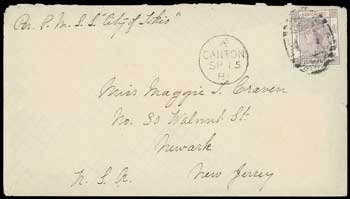 Per P. M. S. S. "City of Tokio"
A
CANTON
SP 15
81
Miss Maggie S. Craven
No. 30 Walnut St.
Newark
New Jersey
U. S. A.